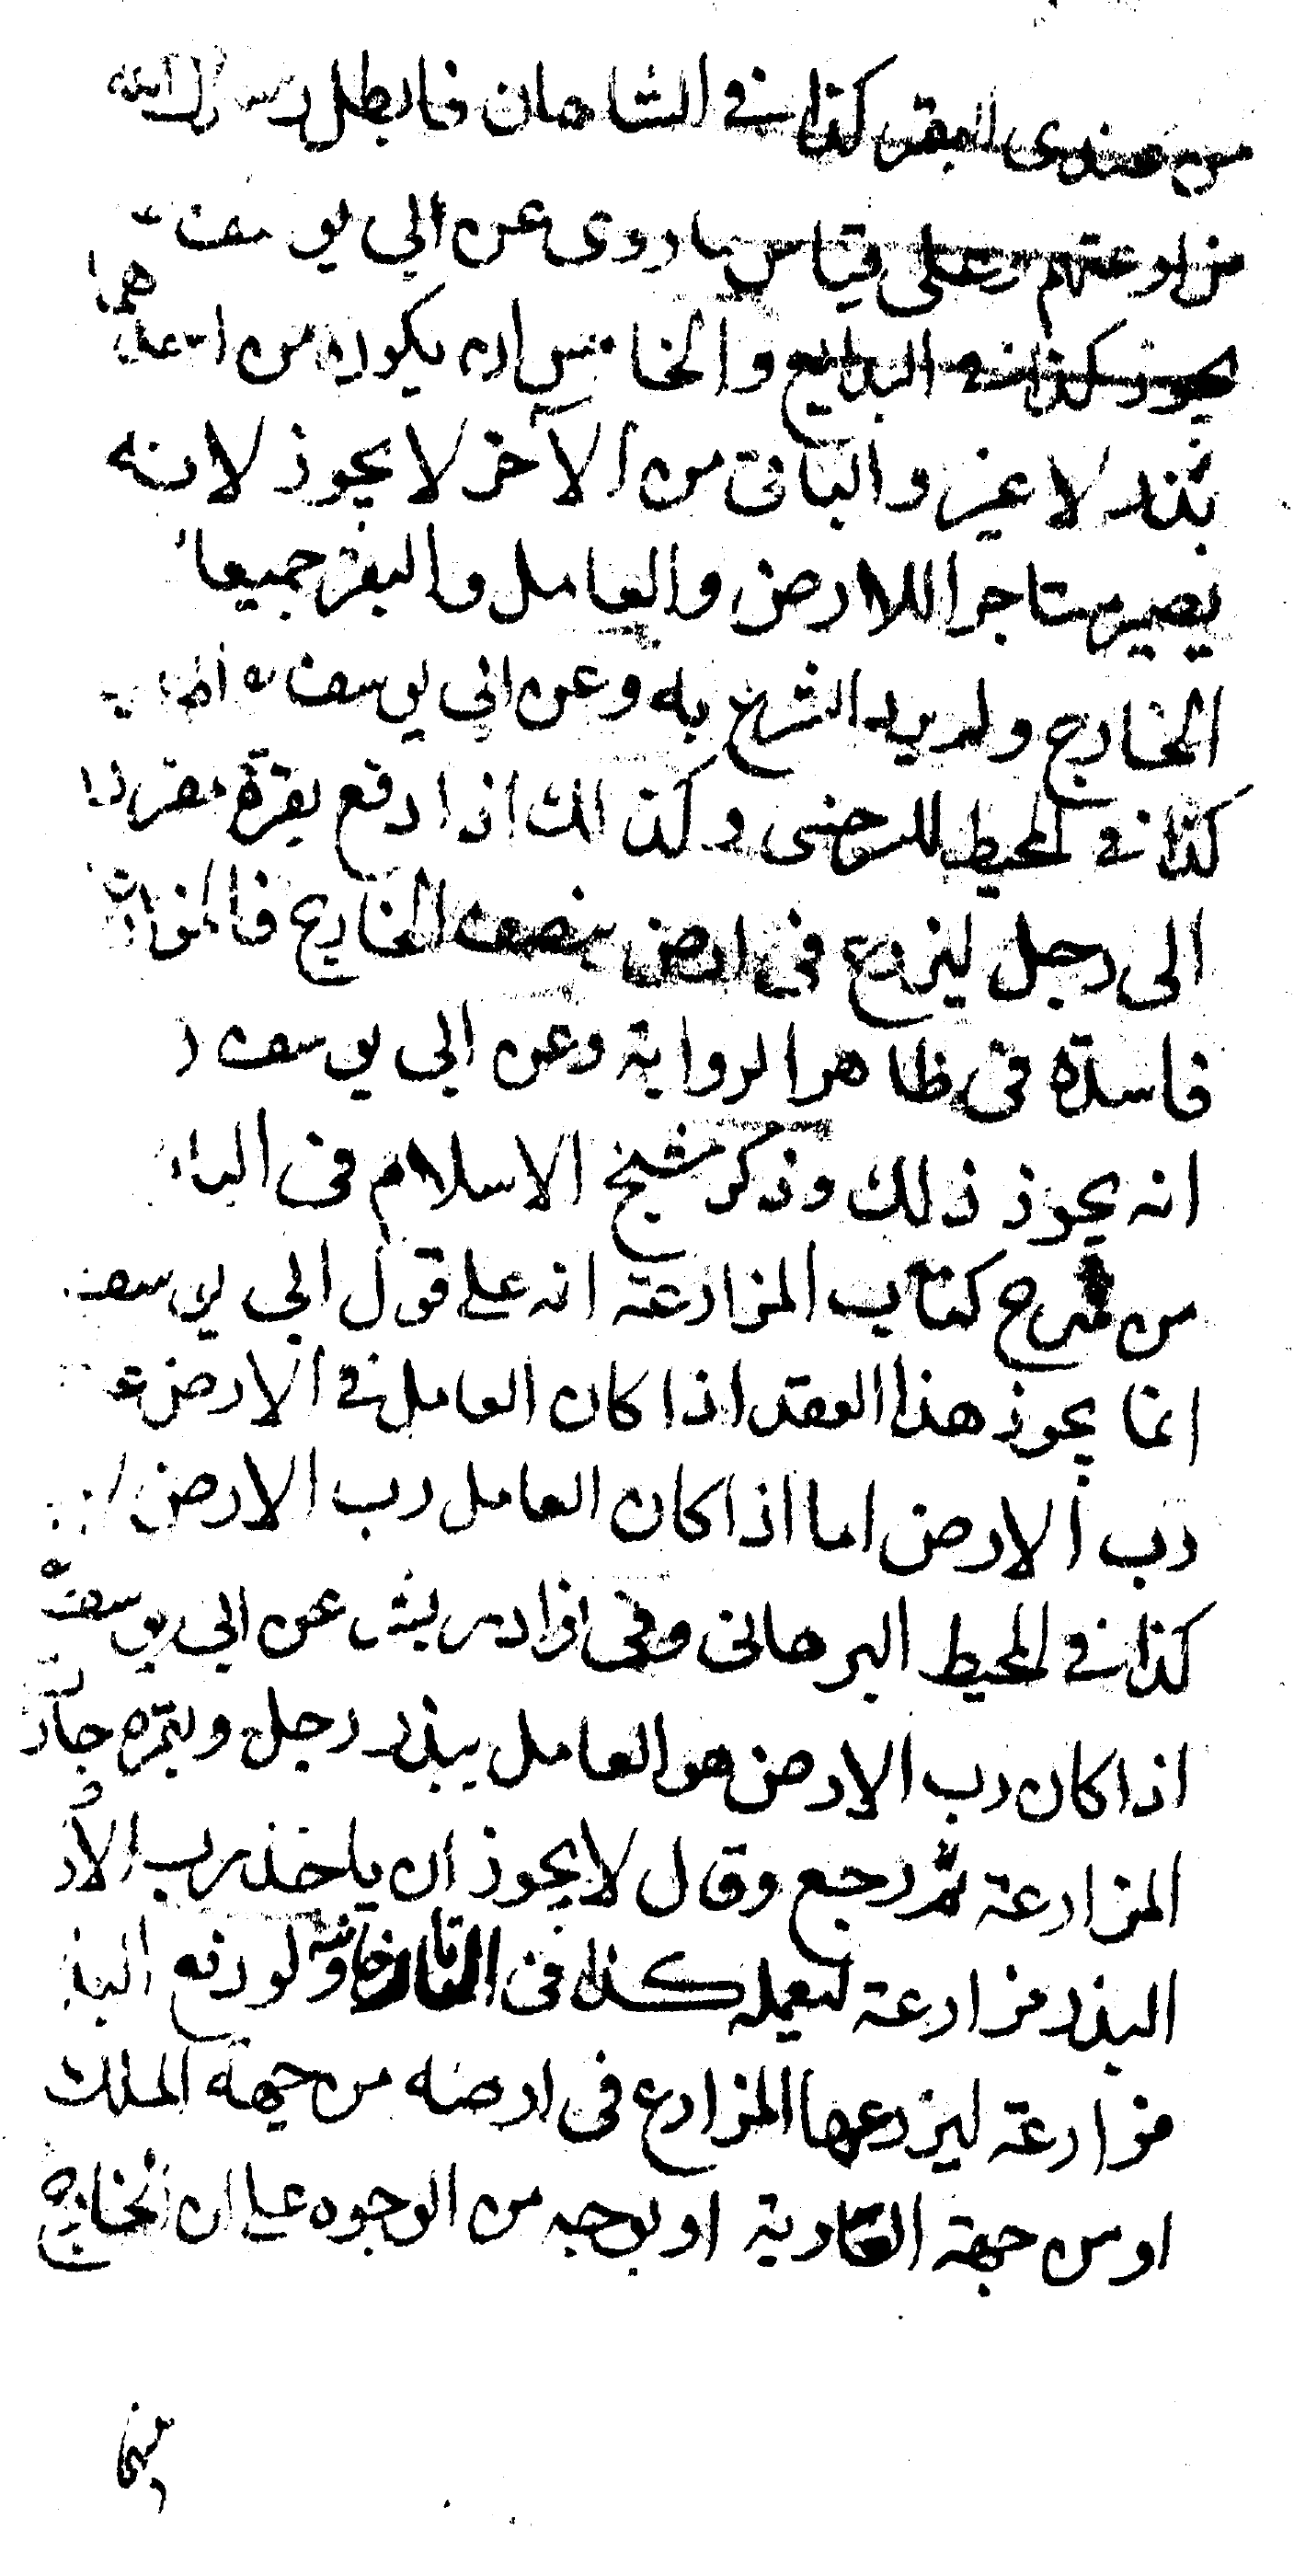 من عندى البقر كذا فى الشاهان فابطل رسول الله
مزارعتهم وعلى قياس ما روى عن ابى يوسف
يجوز كذا فى البدايع والخامس ان يكون من احدهما
بذر لا غير والباقى من الآخر لا يجوز لانه
يصير مستاجرا للارض والعامل والبقر جميعا
الخارج ولم يرد الشرع به وعن ابى يوسف
كذا فى المحيط للسرخسى وكذالك اذا دفع بقرة
الى رجل ليزرع فى ارض بنصف الخارج فالمزارعة
فاسدة فى ظاهر الرواية وعن ابى يوسف ر
انه يجوز ذلك وذكر شيخ الاسلام فى
من شرح كتاب المزارعة انه على قول ابى يوسف
انما يجوز هذا العقد اذا كان العامل فى الارض
رب الارض اما اذا كان العامل رب الارض
كذا فى المحيط البرهانى وفى عن ابى يوسف
اذا كان رب الارض هو العامل ببذر رجل وبقره جازت
المزارعة ثم رجع وقال لا يجوز ان ياخذ رب الار
البذر مزارعة ليعمله كذا فى التاتارخانيه ولو دفع البذر
مزارعة ليزرعها المزارع فى ارضه من جهة الملك
او من جهة العارية او بوجه من الوجوه على ان الخارج